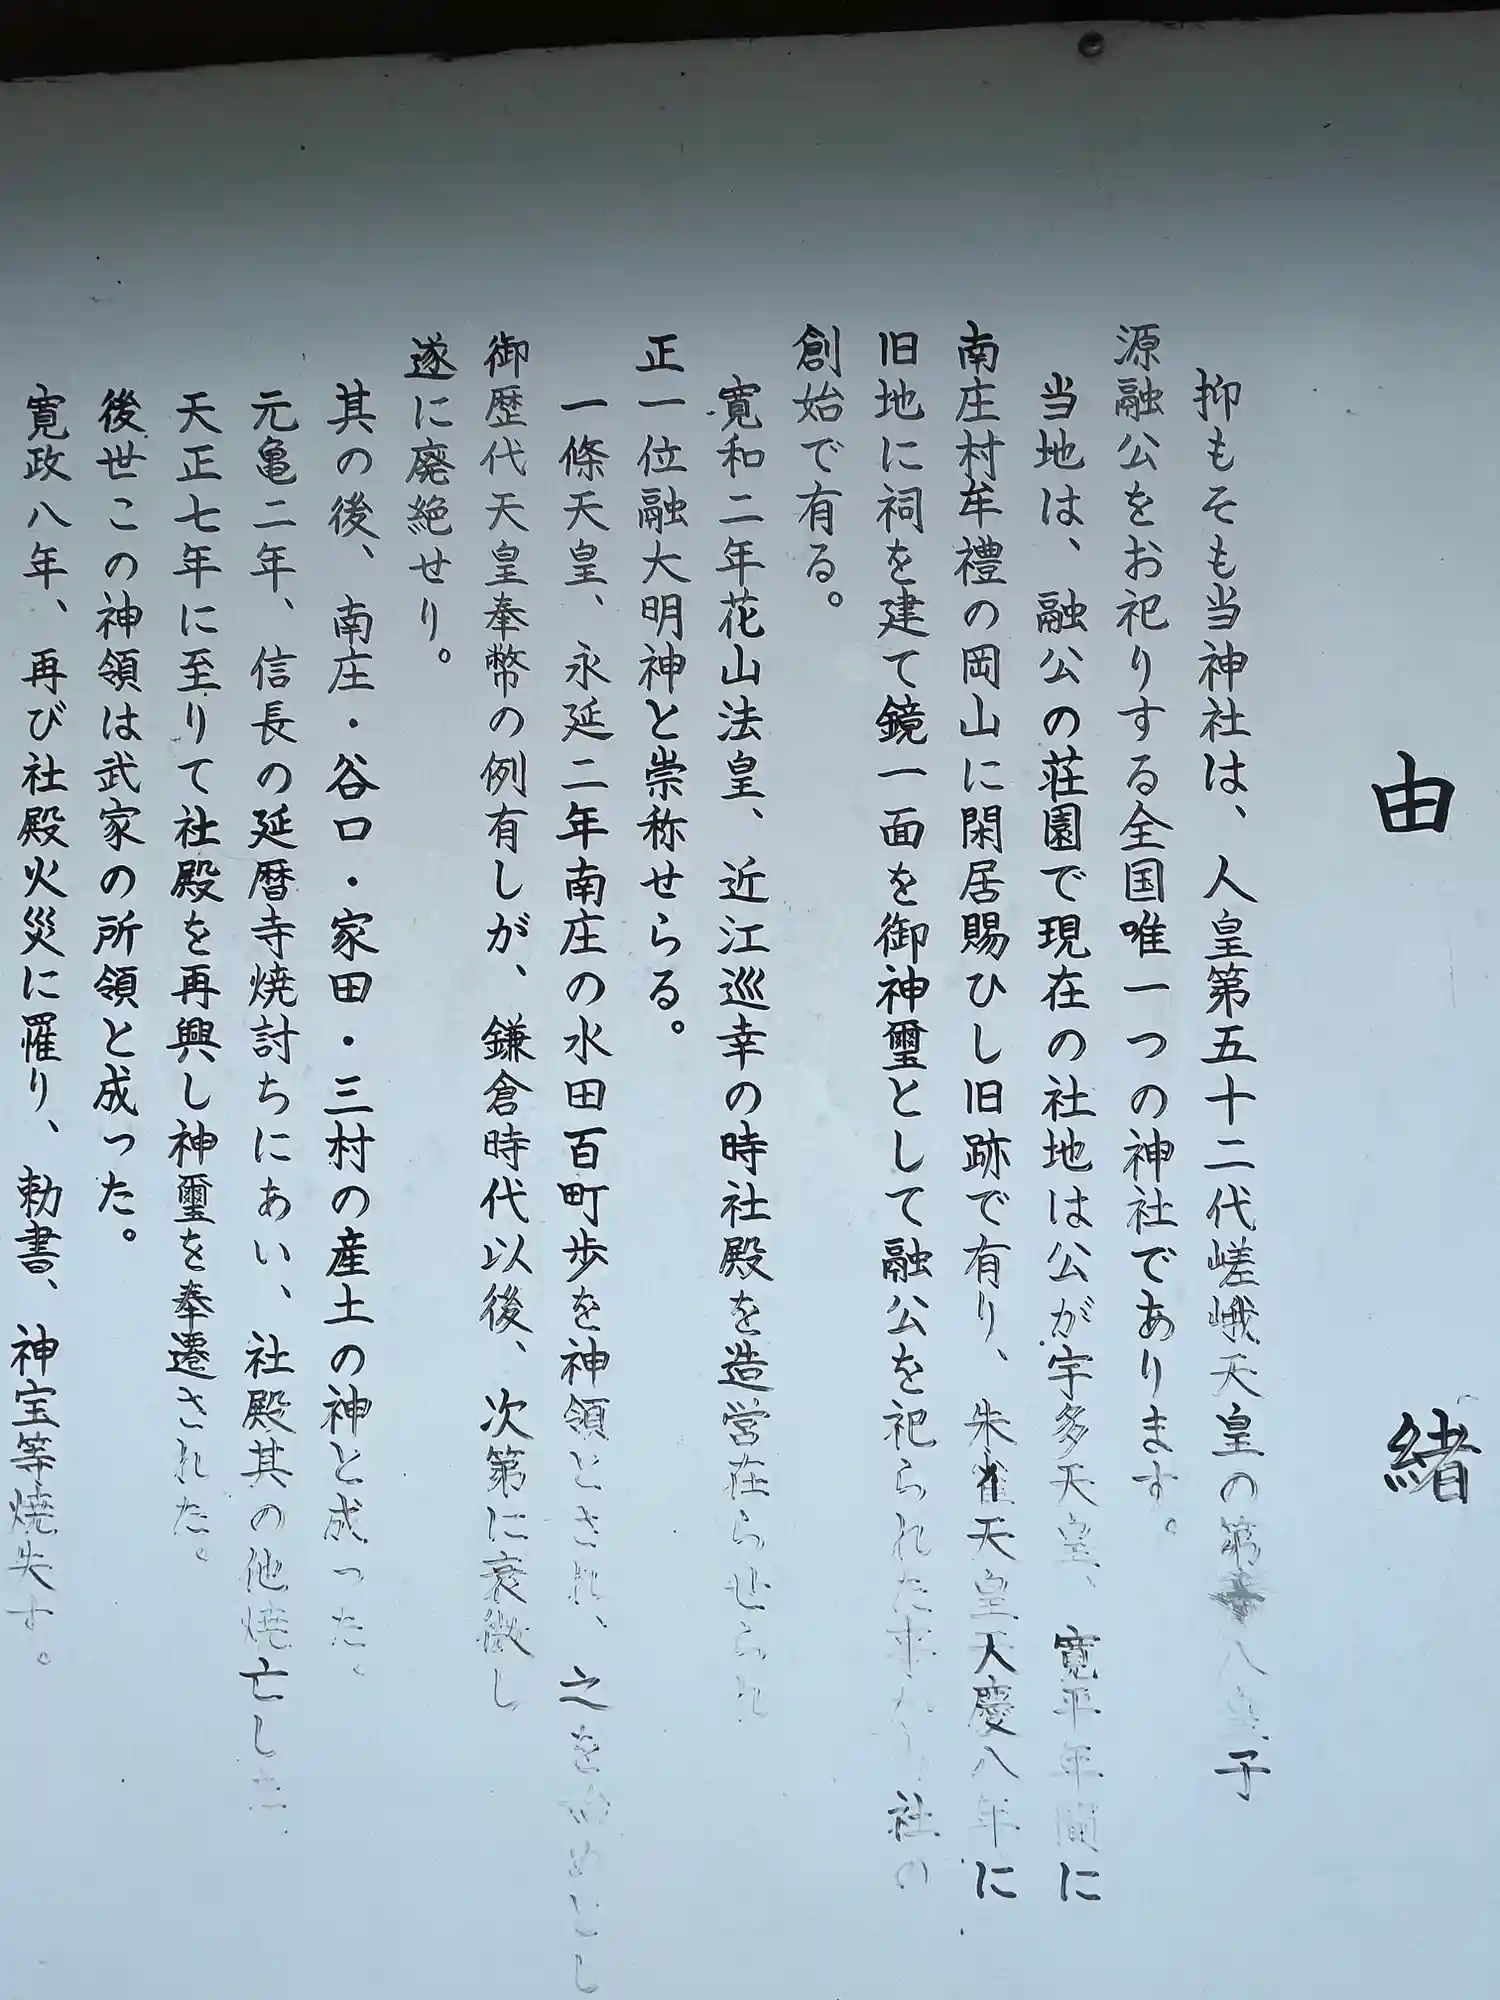 由緒
抑もそも当神社は、人皇第五十二代嵯峨天皇の第八皇子
源融公をお祀りする全国唯一つの神社であります。
当地は、融公の荘園で現在の社地は公が宇多天皇、寛平年間に
南庄村牟禮の岡山に閑居賜ひし旧跡で有り、朱雀天皇天慶八年に
旧地に祠を建て鏡一面を御神璽として融公を祀られた 社の
創始で有る。
寛和二年花山法皇、近江巡幸の時社殿を造営在らせられ
正一位融大明神と崇称せらる。
一條天皇、永延二年南庄の水田百町歩を神領とされ、之を始めとし
御歴代天皇奉幣の例有しが、鎌倉時代以後、次第に衰微し
遂に廃絶せり。
其の後、南庄・谷口・家田・三村の産土の神と成った。
元亀二年、信長の延暦寺焼討ちにあい、社殿其の他焼亡した
天正七年に至りて社殿を再興し神璽を奉遷された。
後世この神領は武家の所領と成った。
寛政八年、再び社殿火災に罹り、勅書、神宝等焼失す。